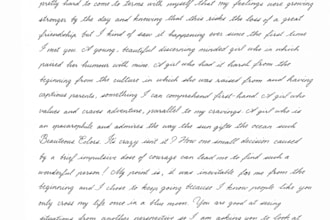 pretty hard to come to terms with myself that my feelings were growing
stronger by the day and knowing that this risks the loss of a great
friendship but I kind of saw it happening ever since the first time
I met you. A young, beautiful discerning minded girl who in which
paired her humour with mine. A girl who had it harsh from the
beginning from the culture in which she was raised from and having
captious parents, something I can comprehend first-hand. A girl who
values and craves adventure, parallel to my cravings. A girl who is
an opacarophile and admires the way the sun gifts the ocean such
Beauteous Colors. Its crazy isnt it? How one small decision caused
by a brief impulsive dose of courage can lead me to find such a
wonderful person! My point is, it was inevitable for me from the
beginning and I chose to keep going because I know people like you
only cross my life once in a blue moon. You are good at seeing
situations from another perspective so I am asking you to look at